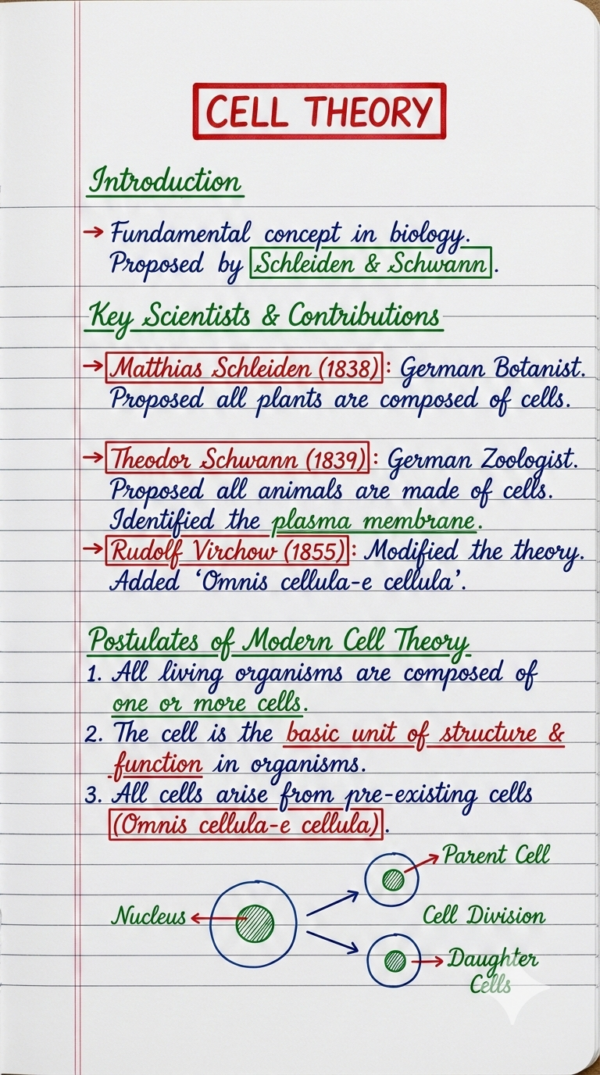 CELL THEORY
Introduction
→ Fundamental concept in biology.
Proposed by Schleiden & Schwann.
Key Scientists & Contributions
→ Matthias Schleiden (1838): German Botanist.
Proposed all plants are composed of cells.
→ Theodor Schwann (1839): German Zoologist.
Proposed all animals are made of cells.
Identified the plasma membrane.
→ Rudolf Virchow (1855): Modified the theory.
Added ‘Omnis cellula-e cellula’.
Postulates of Modern Cell Theory
1. All living organisms are composed of
one or more cells.
2. The cell is the basic unit of structure &
function in organisms.
3. All cells arise from pre-existing cells
(Omnis cellula-e cellula).
Parent Cell
Nucleus
Cell Division
Daughter
Cells